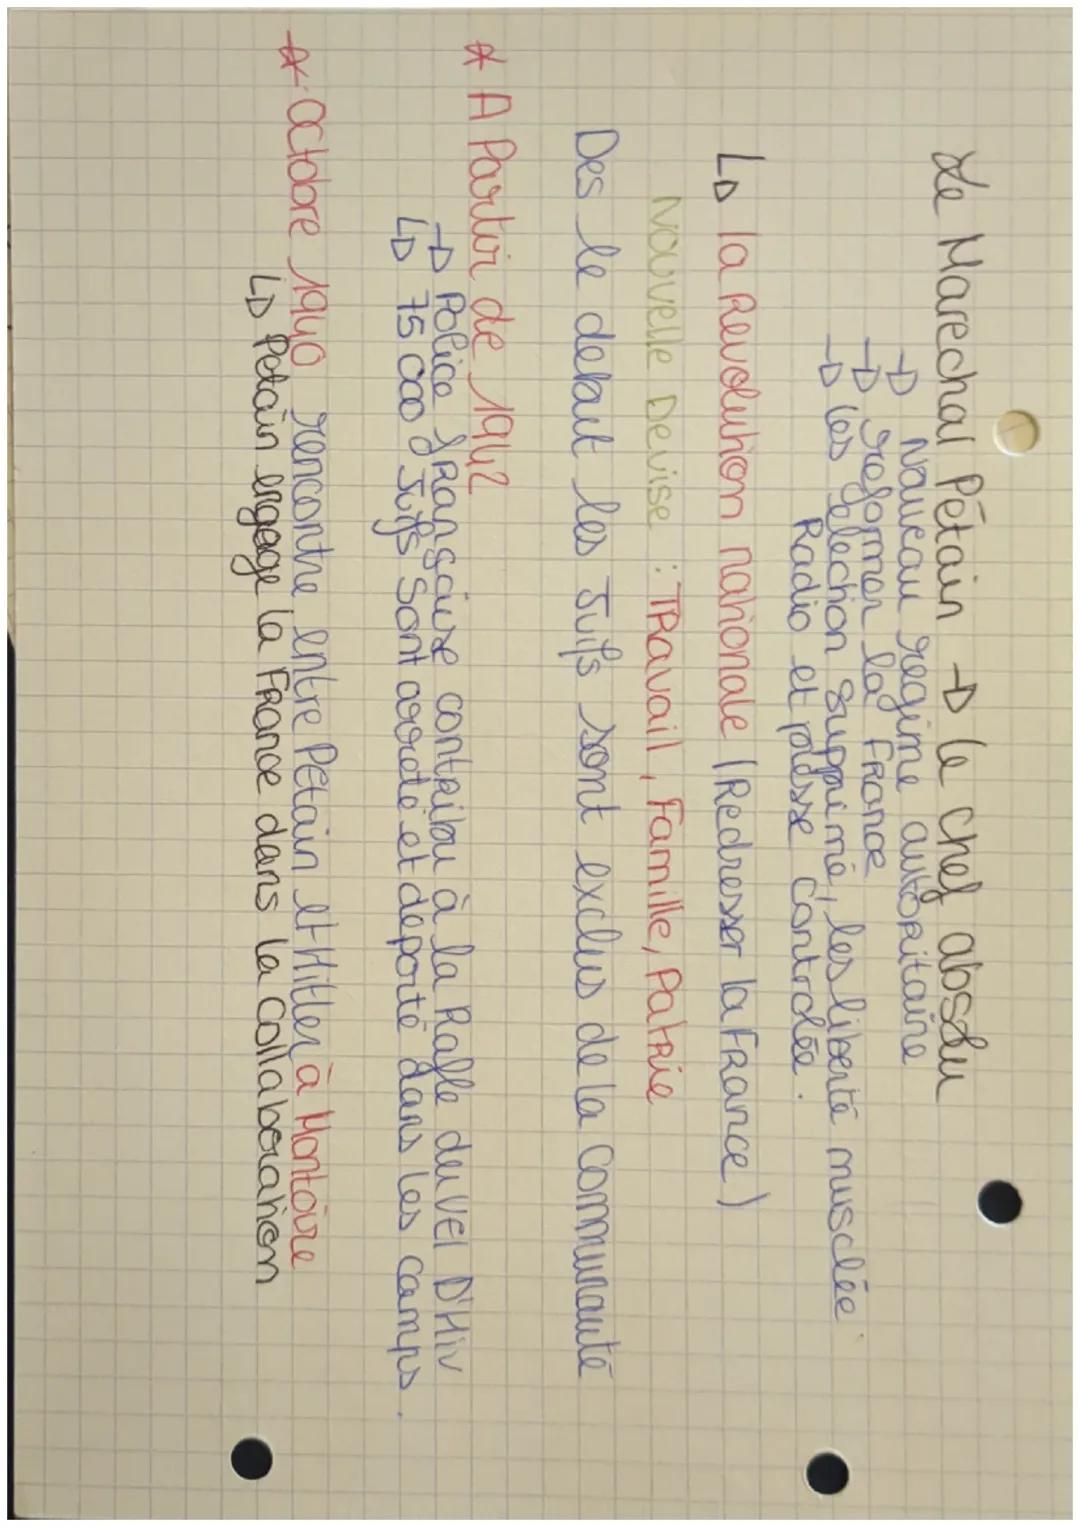 Le Marechal Pétain → le chef absolu
→ Nouveau regime autoritaire
→ reformer la France
→ les election supprimé, les liberté musclée
Radio et presse controlée.
↳ la Revolution nationale (Redresser la France)
Nouvelle Devise : TRavail, Famille, PatRie
Des le debut les Juifs sont exclus de la Communauté
* A Partir de 1942
→ Police fRançaise contribu à la Rafle du Vel D'Hiv
↳ 75 000 Juifs Sont arreté et deporté dans les camps.
* Octobre 1940 rencontre entre Pétain et Hitler à Montoire
↳ Petain engage la FRance dans la Collaboration